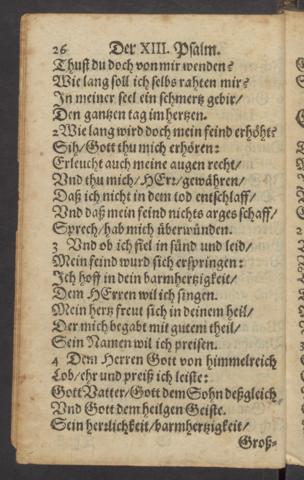 26 Der XIII. Psalm.
Thust du doch von mir wenden?
Wie lang soll ich selbs rahten mir?
In meiner seel ein schmertz gebir/
Den gantzen tag im hertzen.
2 Wie lang wird doch mein feind erhöht?
Sih/ Gott thu mich erhören:
Erleucht auch meine augen recht/
Vnd thu mich/ HErr/ gewähren/
Daß ich nicht in dem tod entschlaff/
Vnd daß mein feind nichts arges schaff/
Sprech/ hab mich überwunden.
3 Vnd ob ich fiel in sünd und leid/
Mein feind wurd sich erspringen:
Ich hoff in dein barmhertzigkeit/
Dem HErren wil ich singen.
Mein hertz freut sich in deinem heil/
Der mich begabt mit gutem theil/
Sein Namen wil ich preisen.
4 Dem Herren Gott von himmelreich
Lob/ ehr und preiß ich leiste:
Gott Vatter/ Gott dem Sohn deßgleich
Vnd Gott dem heilgen Geiste.
Sein herrlichkeit/ barmhertzigkeit/
Groß-